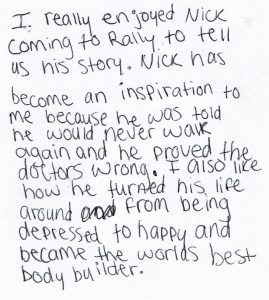 I really enjoyed Nick
coming to Rally to tell
us his story. Nick has
become an inspiration to
me because he was told
he would never walk
again and he proved the
dottors wrong. I also like
how he turned his life
around from being
depressed to happy and
became the worlds best
body builder.